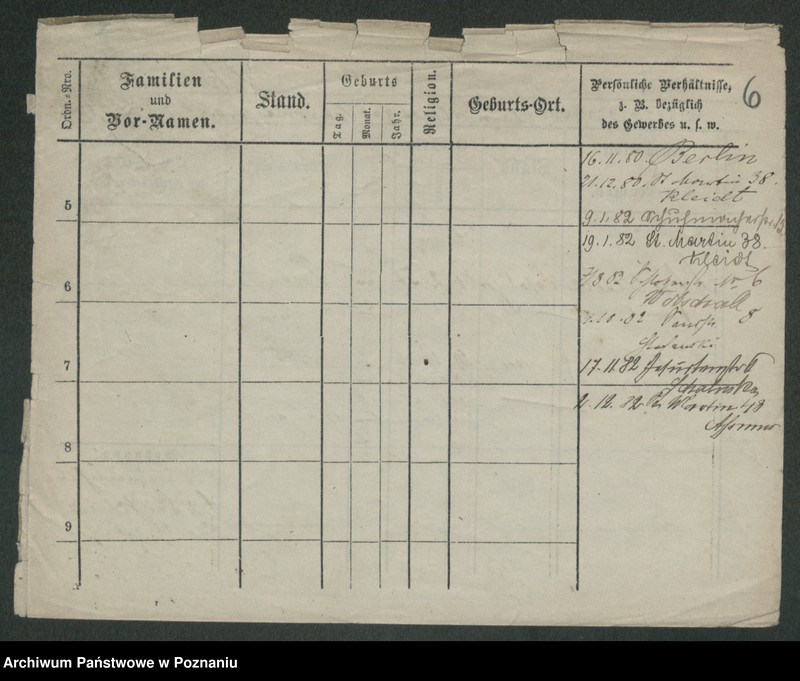 Ordn.-Nro.
Familien
und
Vor-Namen.
Stand.
Geburts
Tag.
Monat.
Jahr.
Religion.
Geburts-Ort.
Persönliche Verhältnisse,
z. B. bezüglich
des Gewerbes u. s. w.
6
16.11.80. Berlin
21.12.80. St Martin 38.
Kleidt
5
9.1.82 Schuhmacherstr.
19.1.82 St. Martin 38.
Kleidt
6
No 6
10.82 8
7
17.11.82
2.12.82 St. Martin 48
8
9
Archiwum Państwowe w Poznaniu